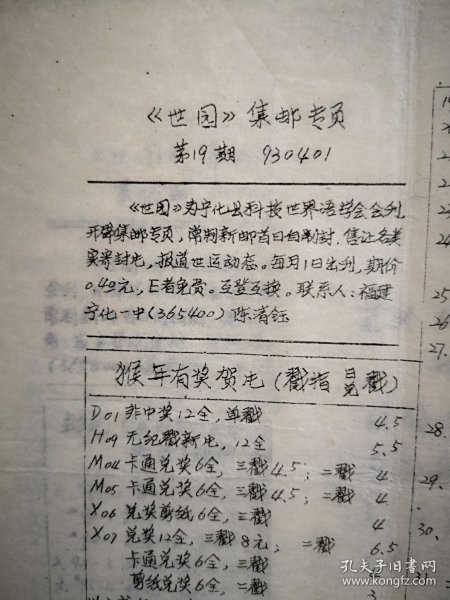 《世园》集邮专页
第19期 930401
《世园》为宁化县科技世界语学会会刊,
开辟集邮专页,常制新邮首日自制封,售让各类
实寄封电,报道世运动态。每月1日出刊,期价
0.40元,E者免费。互登互换。联系人:福建
宁化一中(365400)陈清钰
猴年有奖贺电(戳指首兑戳)
D01 非中奖12全,单戳 4.5
H09 无纪戳新电,12全 5.5
M04 卡通兑奖6全,三戳4.5;二戳 4
M05 卡通兑奖6全,三戳4.5;二戳 4
X06 兑奖剪纸6全,三戳 4
X07 兑奖12全,三戳8元;二戳 6.5
卡通兑奖6全,三戳
剪纸兑奖6全,二戳 3
25
26
27.
28.
29.
30.
孔夫子旧书网
book.kongfz.com